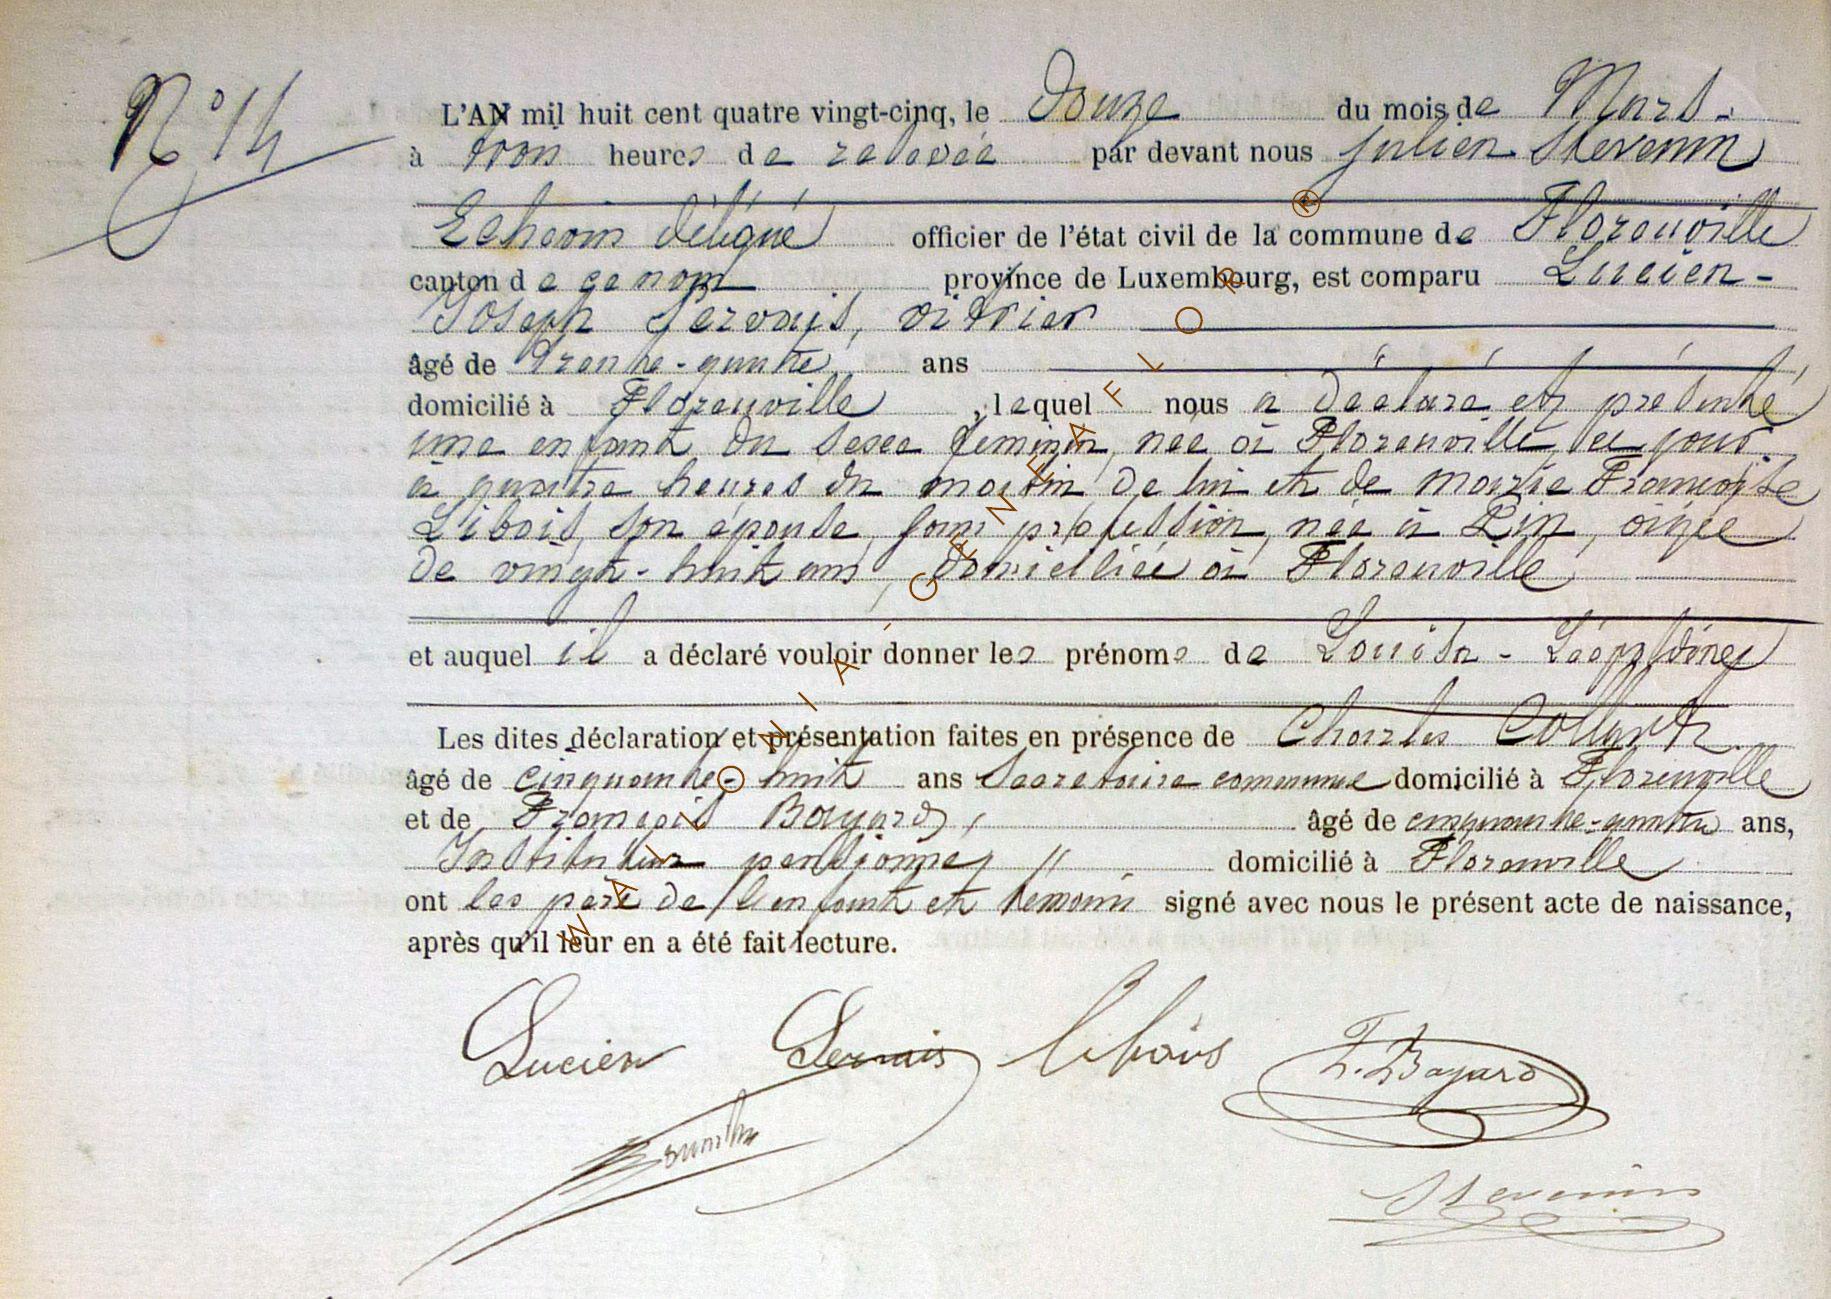 N° 14
L'AN mil huit cent quatre vingt-cinq, le Douze du mois de Mars -
à trois heures de relevée par devant nous Julien Stevenin
Echevin délégué officier de l'état civil de la commune de Florenville
canton de ce nom province de Luxembourg, est comparu Lucien -
Joseph Servais, vitrier
âgé de Trente-quatre ans
domicilié à Florenville, lequel nous a déclaré et présenté
une enfant du sexe féminin, née à Florenville, ce jour
à quatre heures du matin de lui et de Marie Françoise
Libois, son épouse, sans profession, née à Pin, âgée
de vingt-huit ans, domiciliée à Florenville,
et auquel il a déclaré vouloir donner les prénoms de Louisa - Léopoldine
Les dites déclaration et présentation faites en présence de Charles
âgé de cinquante-huit ans Secrétaire communal domicilié à Florenville
et de François Bayard, âgé de cinquante-quatre ans,
Instituteur pensionné, // domicilié à Florenville
ont les père de l'enfant et témoins signé avec nous le présent acte de naissance,
après qu'il leur en a été fait lecture.
Lucien Servais Libois F. Bayard
Stevenin
WALLONIA - GENEAFLOR ®